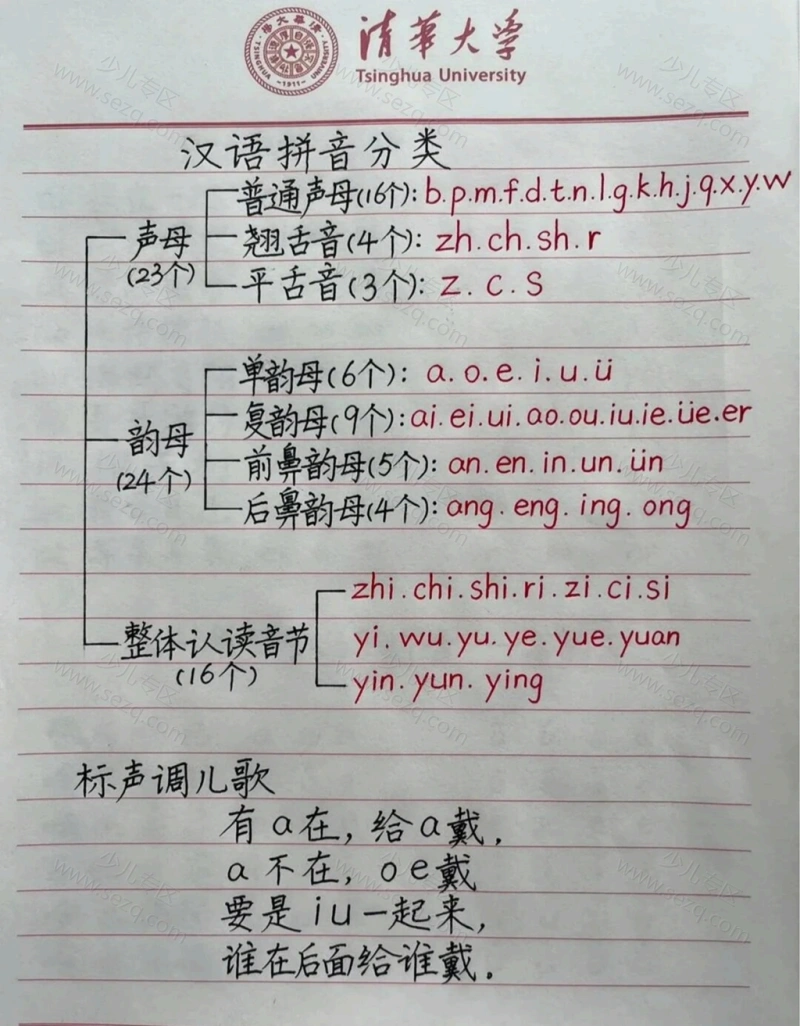 清华大学
Tsinghua University
TSINGHUA UNIVERSITY
–1911–
汉语拼音分类
声母
(23个)
普通声母(16个): b.p.m.f.d.t.n.l.g.k.h.j.q.x.y.w
翘舌音(4个): zh.ch.sh.r
平舌音(3个): z.c.s
韵母
(24个)
单韵母(6个): a.o.e.i.u.ü
复韵母(9个): ai.ei.ui.ao.ou.iu.ie.üe.er
前鼻韵母(5个): an.en.in.un.ün
后鼻韵母(4个): ang.eng.ing.ong
整体认读音节
(16个)
zhi.chi.shi.ri.zi.ci.si
yi.wu.yu.ye.yue.yuan
yin.yun.ying
标声调儿歌
有a在,给a戴,
a不在,oe戴
要是iu一起来,
谁在后面给谁戴.
少儿专区
www.sezq.com